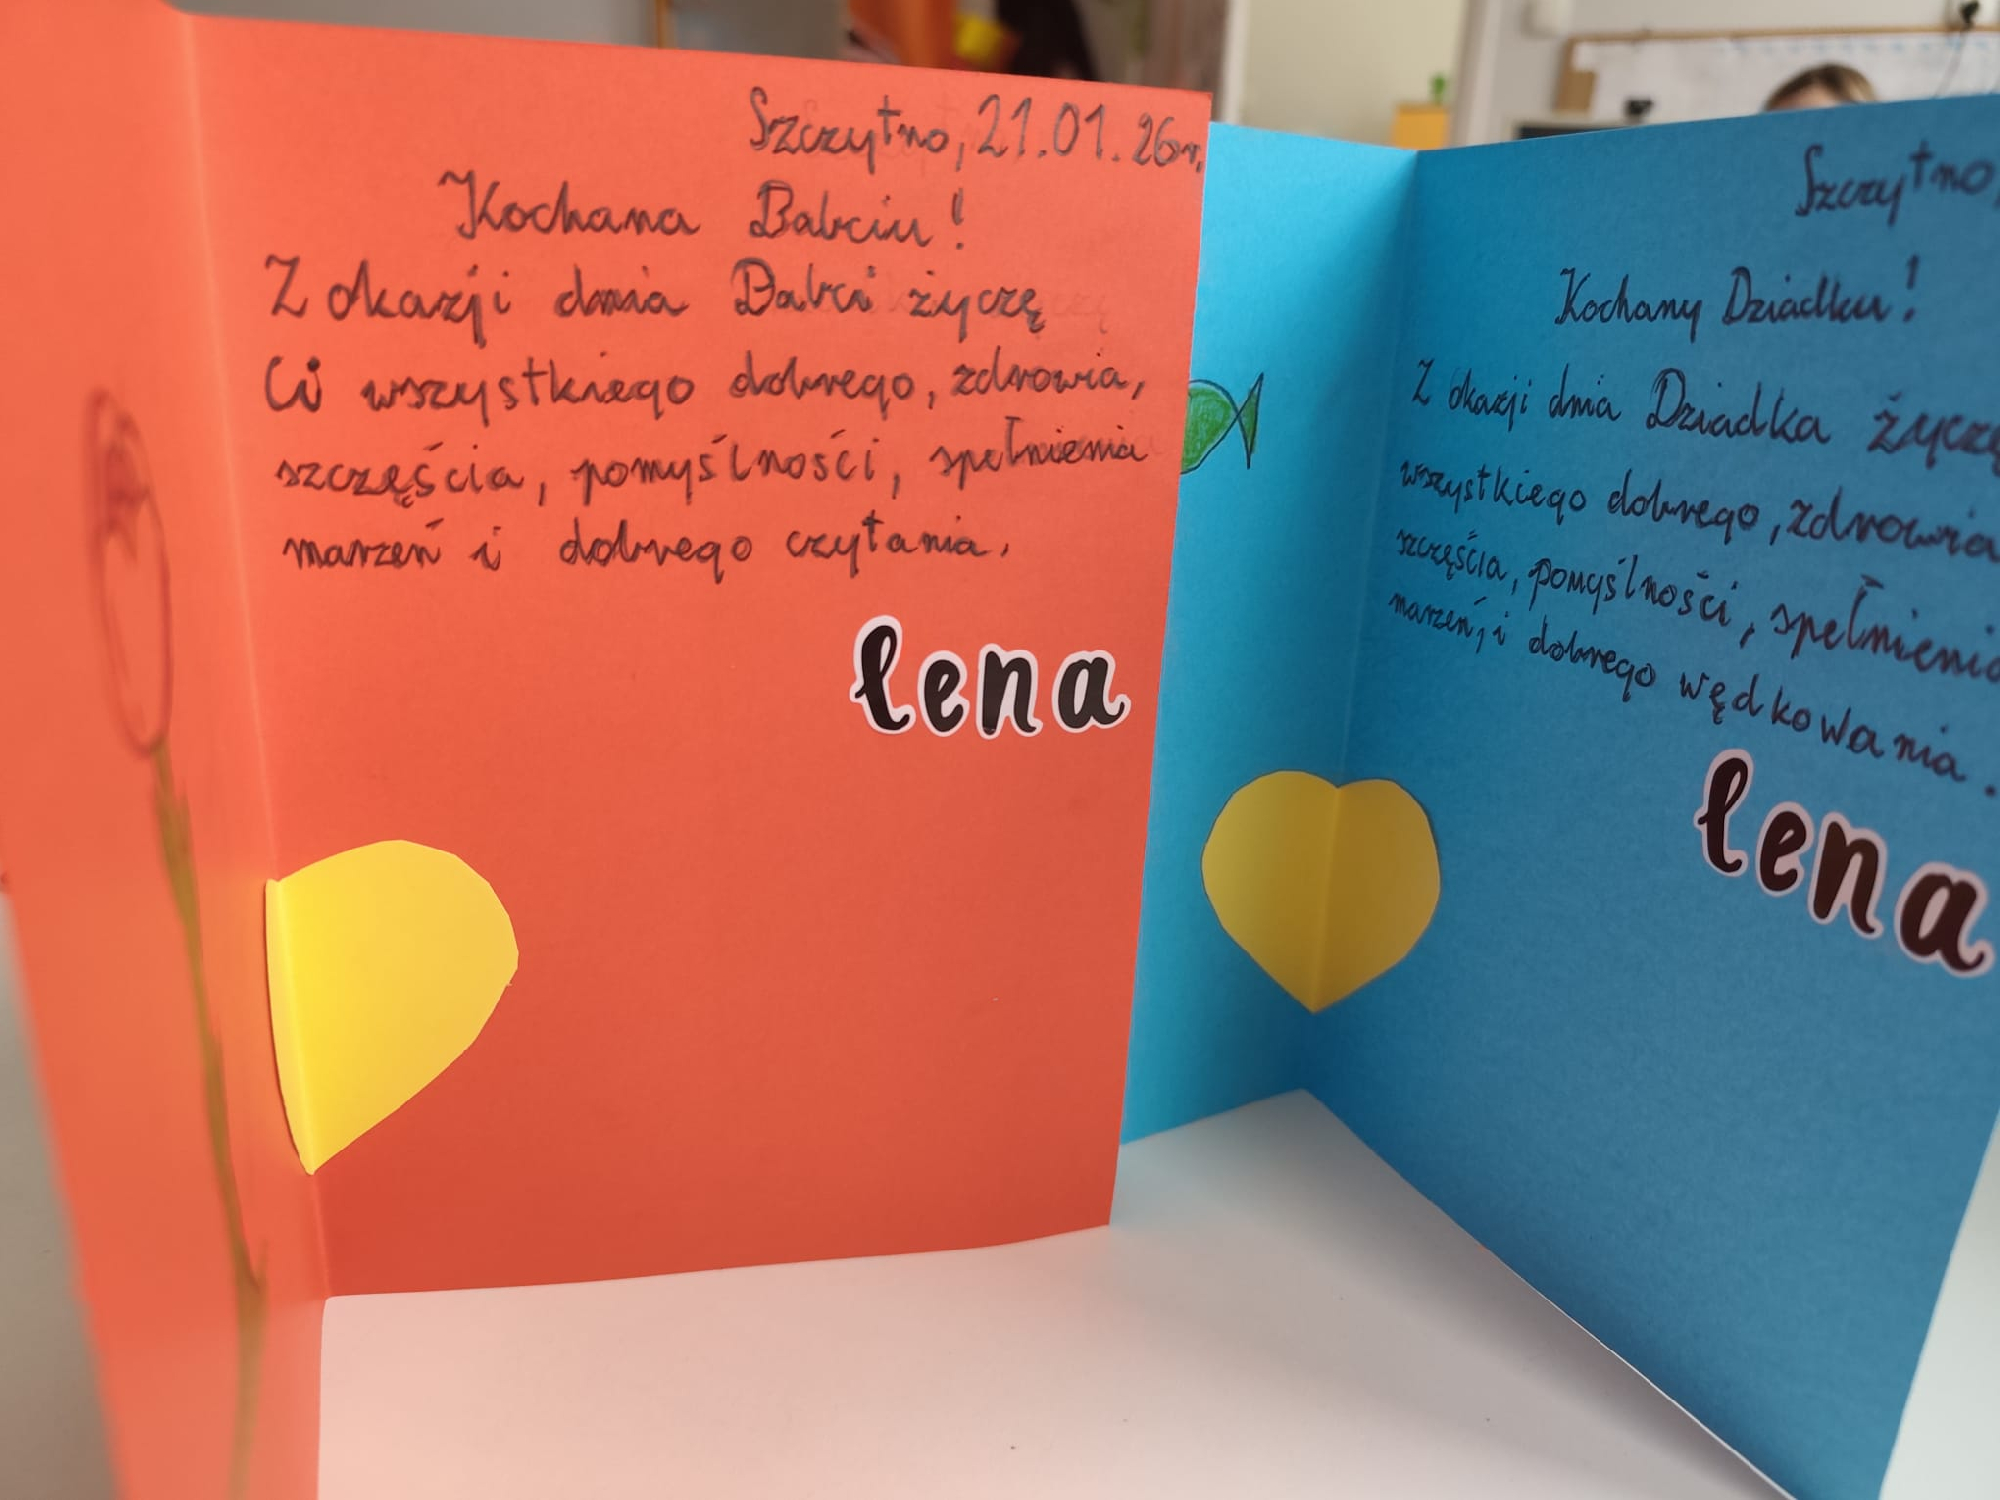 Szczytno, 21.01.26r.
Kochana Babciu!
Z okazji dnia Babci życzę
Ci wszystkiego dobrego, zdrowia,
szczęścia, pomyślności, spełnienia
marzeń i dobrego czytania.
lena
Szczytno,
Kochany Dziadku!
Z okazji dnia Dziadka życzę
wszystkiego dobrego, zdrowia
szczęścia, pomyślności, spełnienia
marzeń, i dobrego wędkowania.
lena